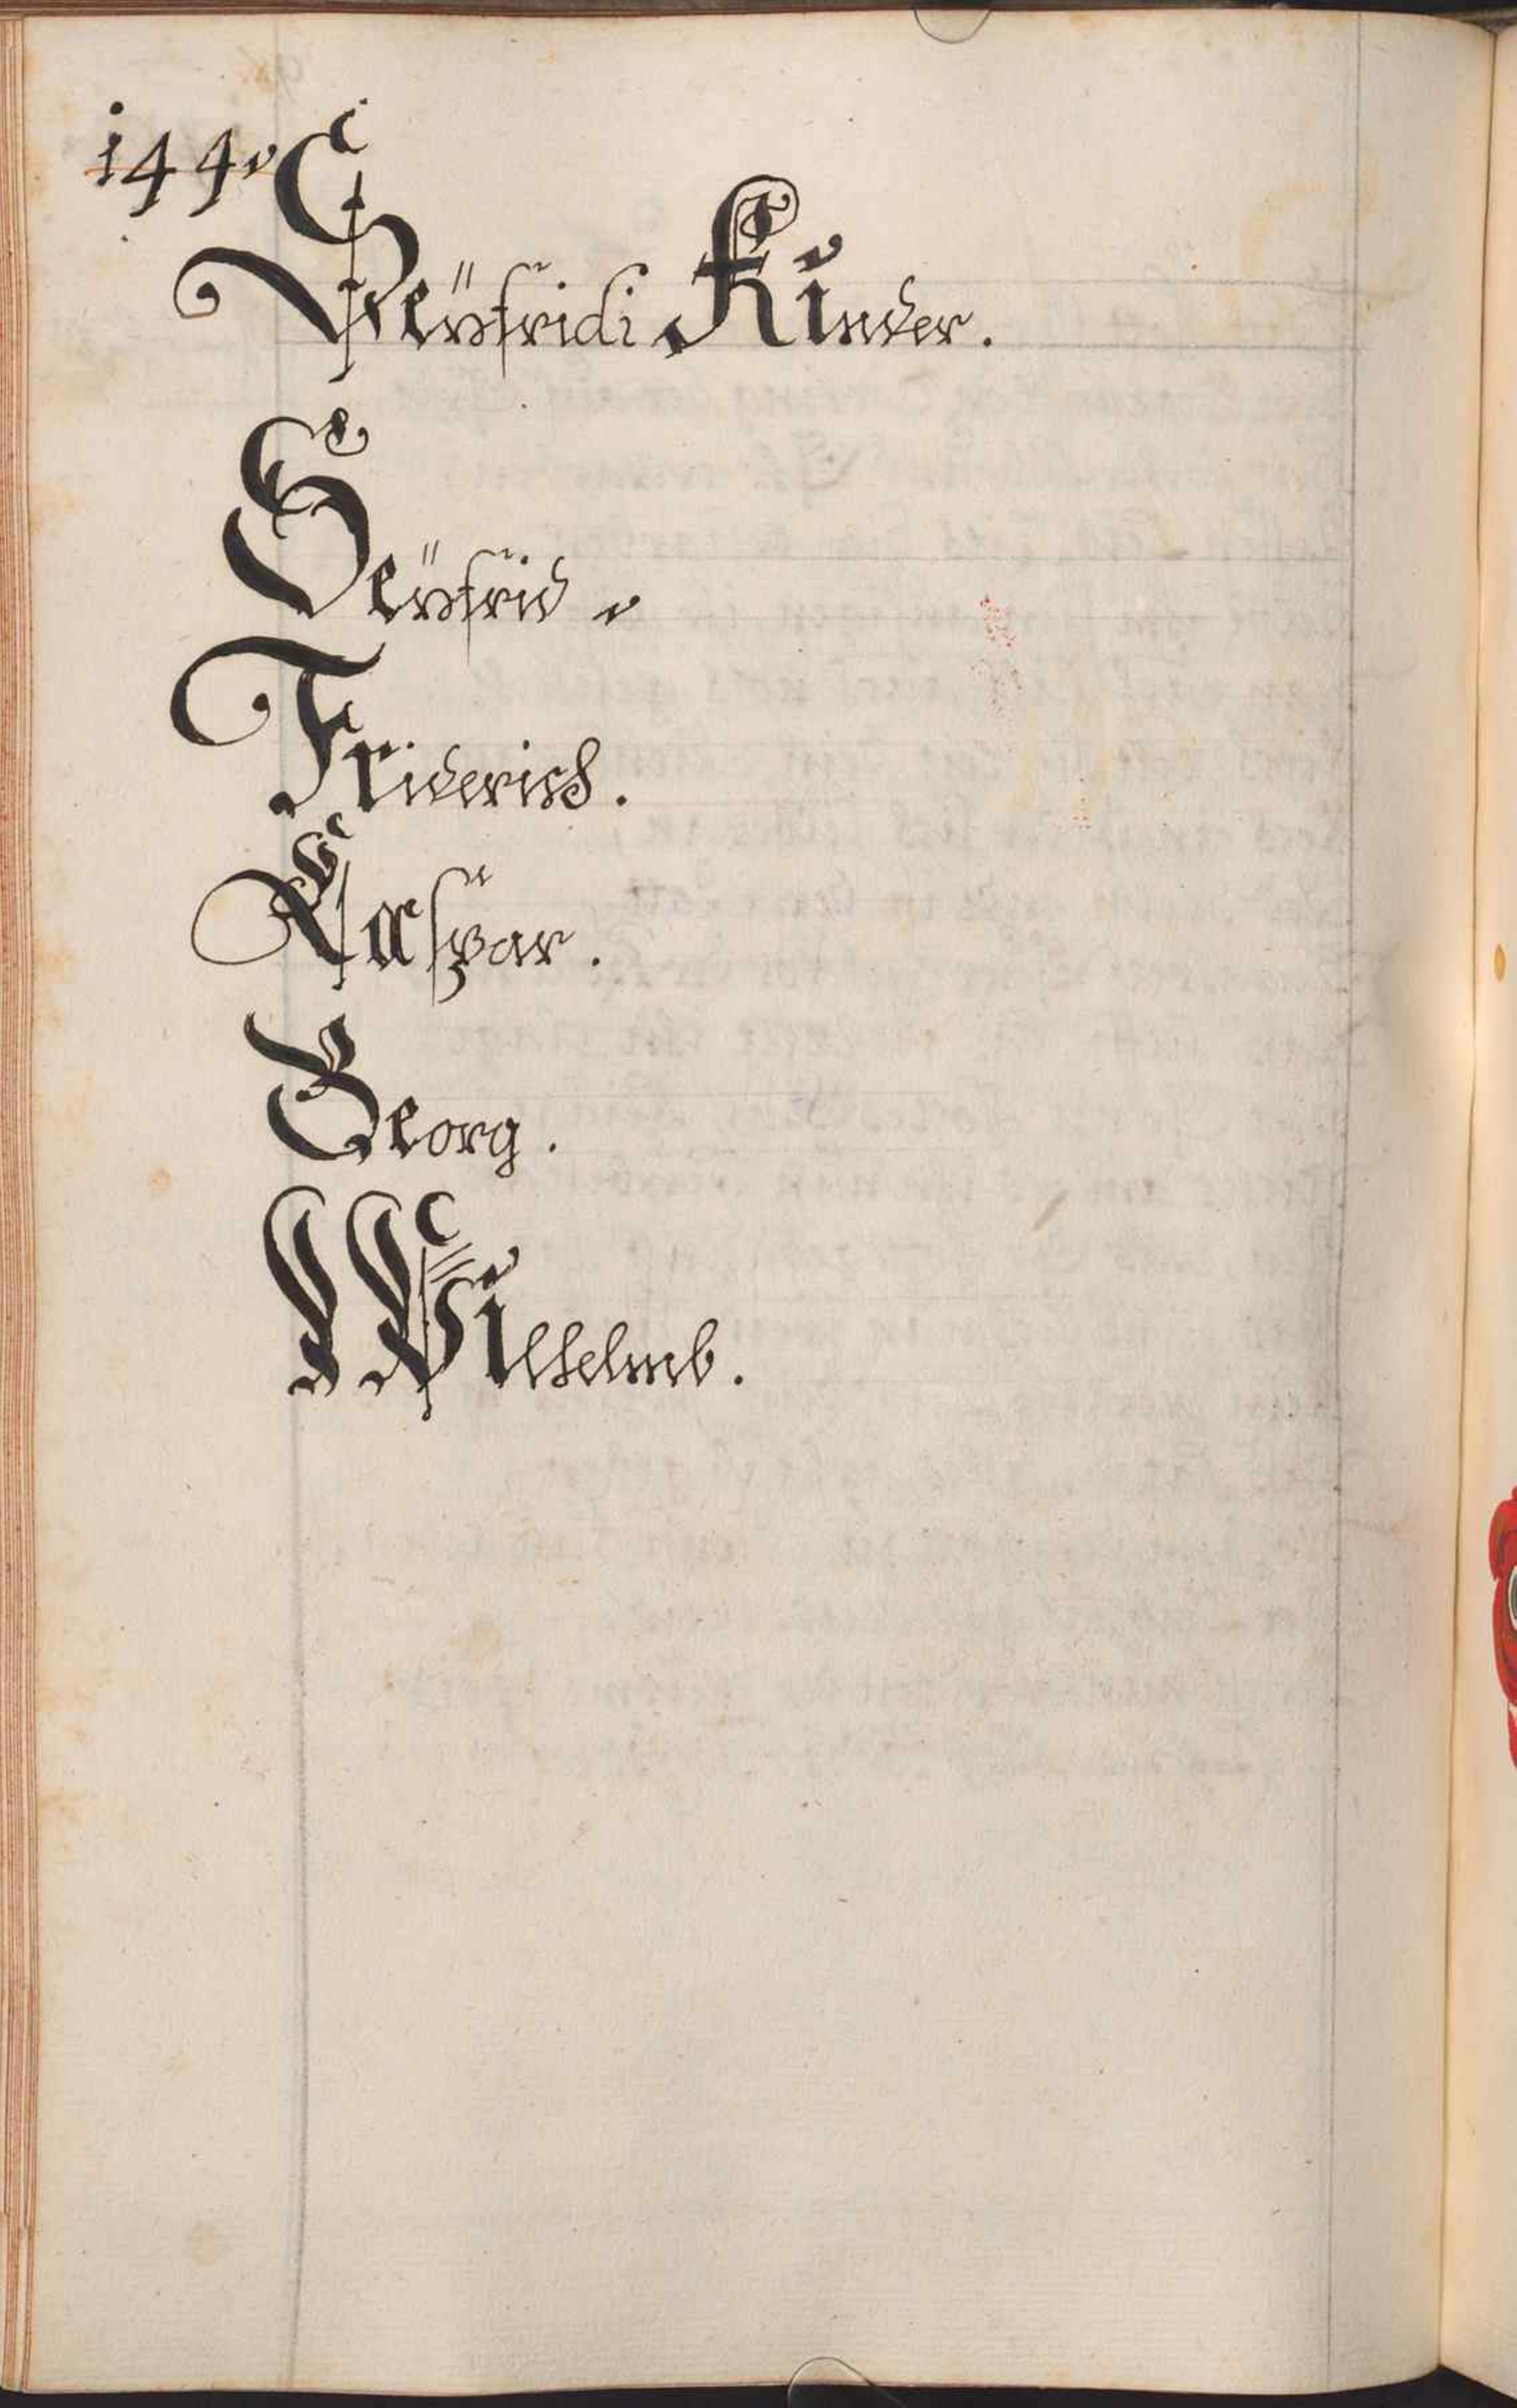 144.
Seÿfridi Kinder.
Seÿfrid.
Friderich.
Caspar.
Georg.
Wilhelmb.